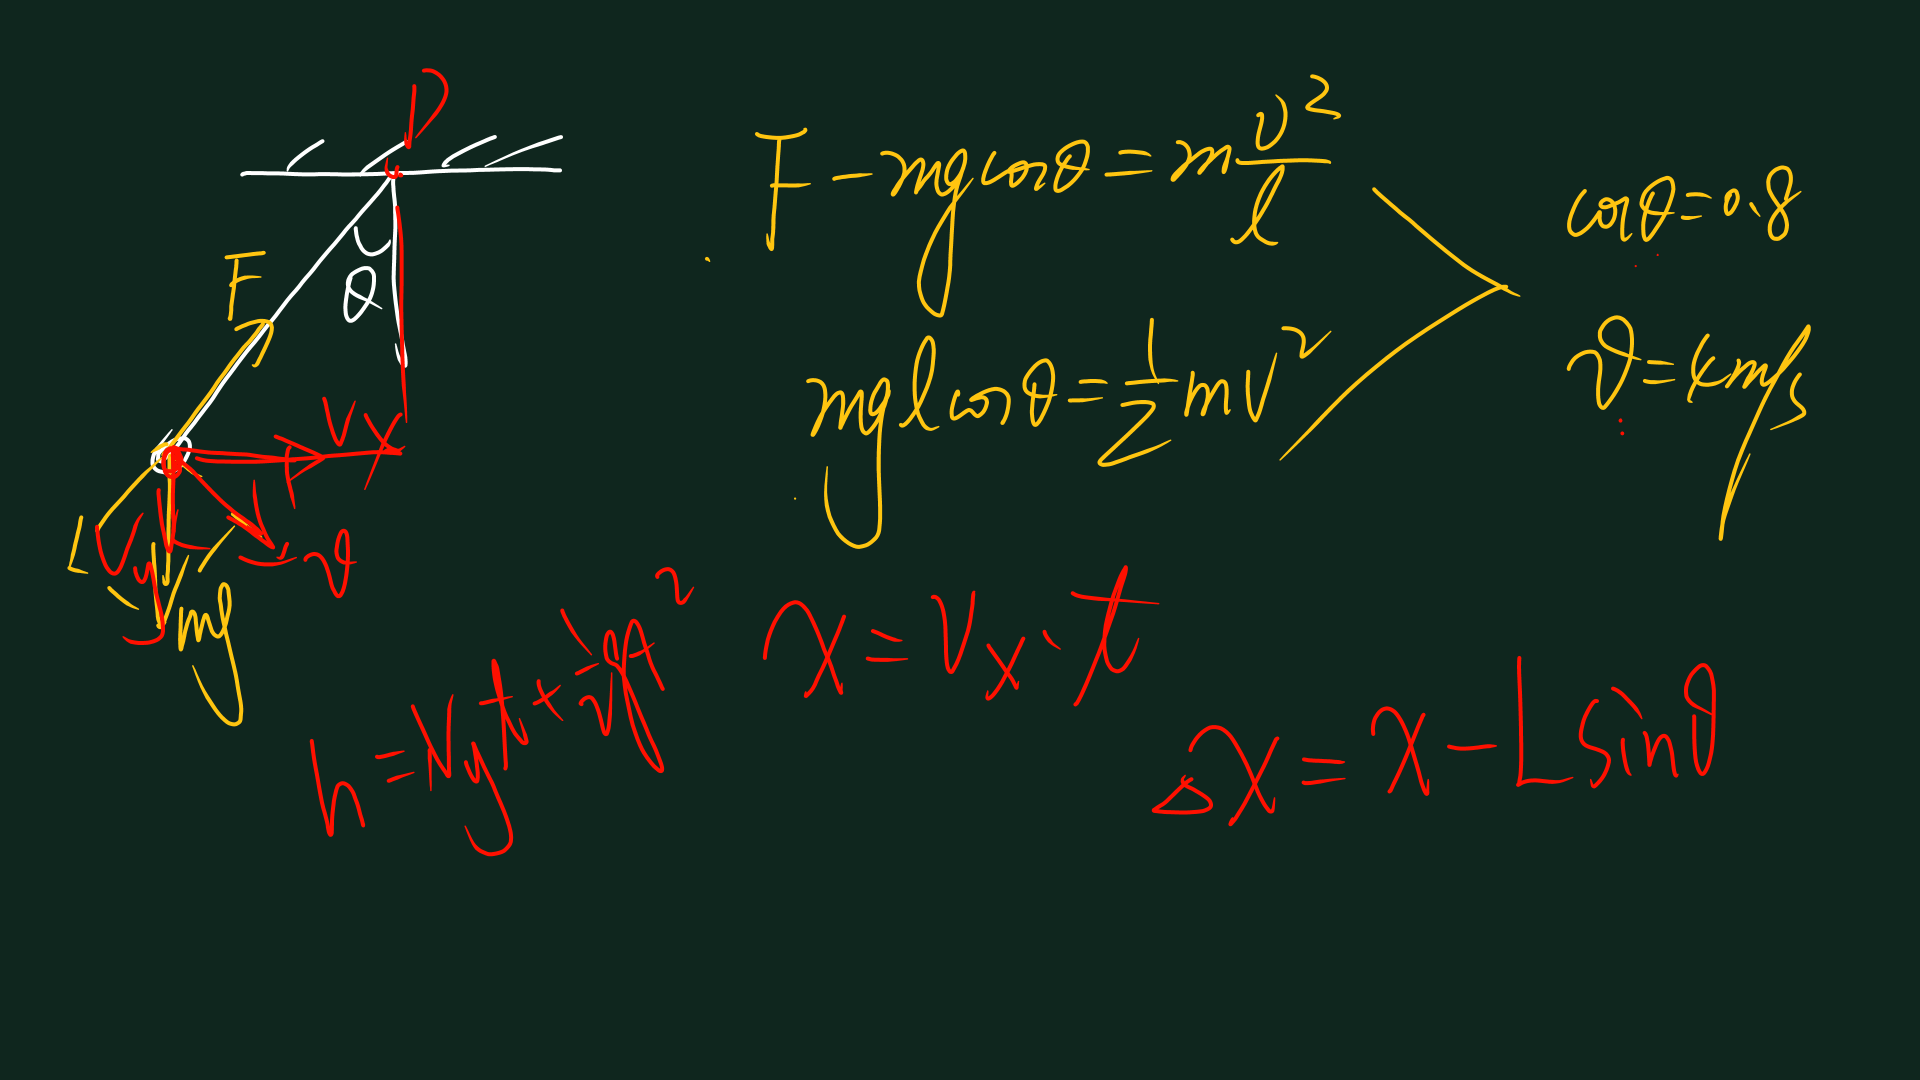 D
F
θ
Vx
Vy
v
mg
F - mg cosθ = m v²/l
mgl cosθ = 1/2 mv²
cosθ = 0.8
v = 4m/s
h = Vyt + 1/2 gt²
x = Vx · t
Δx = x - L sinθ